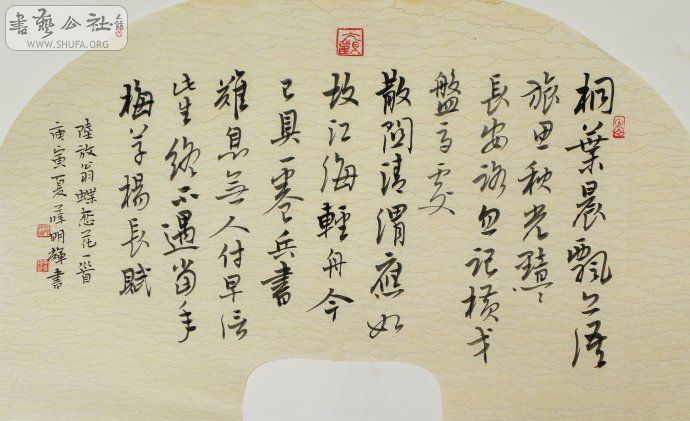 書藝公社
WWW.SHUFA.ORG
桐葉晨飄語
旅思秋光黯〻
長安路忽記橫戈
盤馬處
散関清渭應如
故江海輕舟今
已具一卷兵書
息無人付早信
此生終不遇當年
梅草楊長賦
陸放翁蝶恋花一首
庚寅夏明輝書